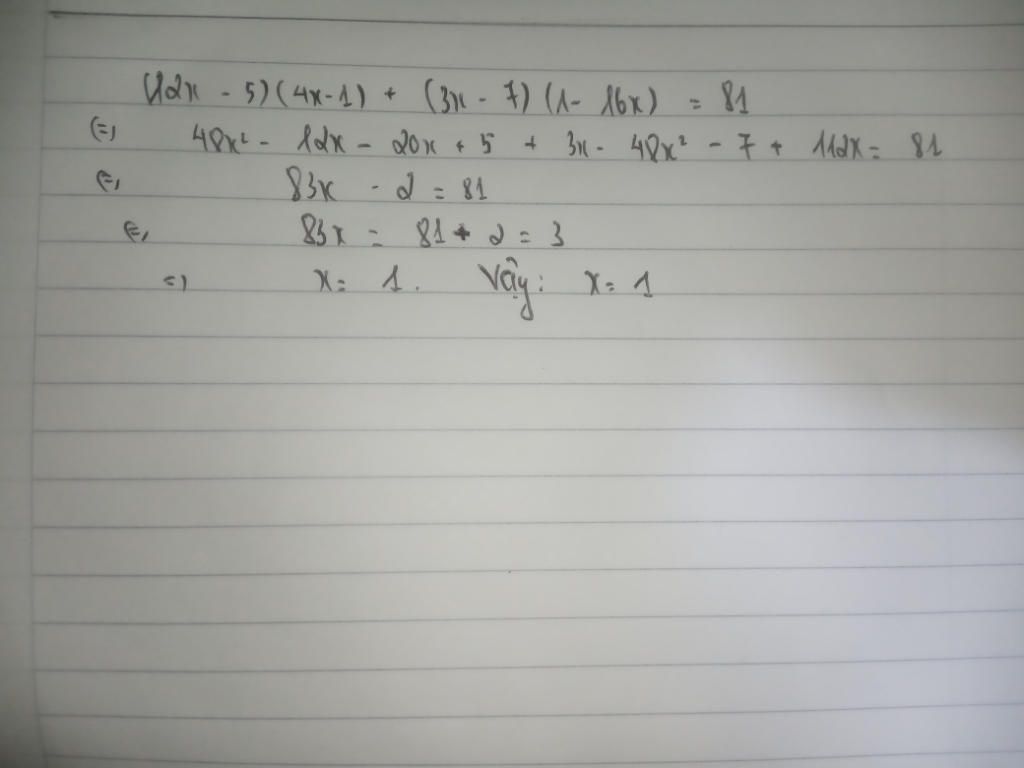 (12x - 5)(4x-1) + (3x - 7)(1- 16x) = 81
(=) 48x² - 12x - 20x + 5 + 3x - 48x² - 7 + 112x = 81
(=) 83x - 2 = 81
(=) 83x = 81 + 2 = 3
=) x = 1. Vậy: x = 1